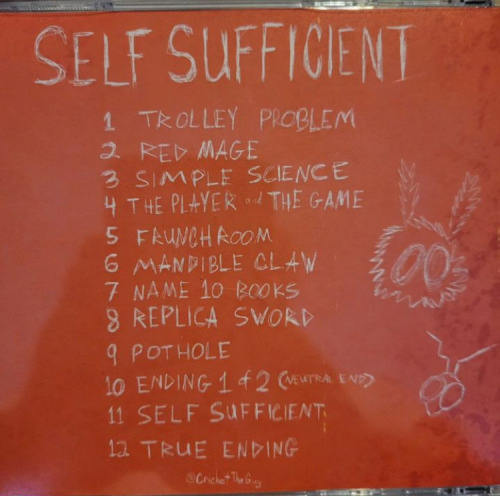 SELF SUFFICIENT
1 TROLLEY PROBLEM
2 RED MAGE
3 SIMPLE SCIENCE
4 THE PLAYER and THE GAME
5 FRUNCHROOM
6 MANDIBLE CLAW
7 NAME 10 BOOKS
8 REPLICA SWORD
9 POTHOLE
10 ENDING 1 & 2 (NEUTRAL END)
11 SELF SUFFICIENT
12 TRUE ENDING
@CricketTheGuy